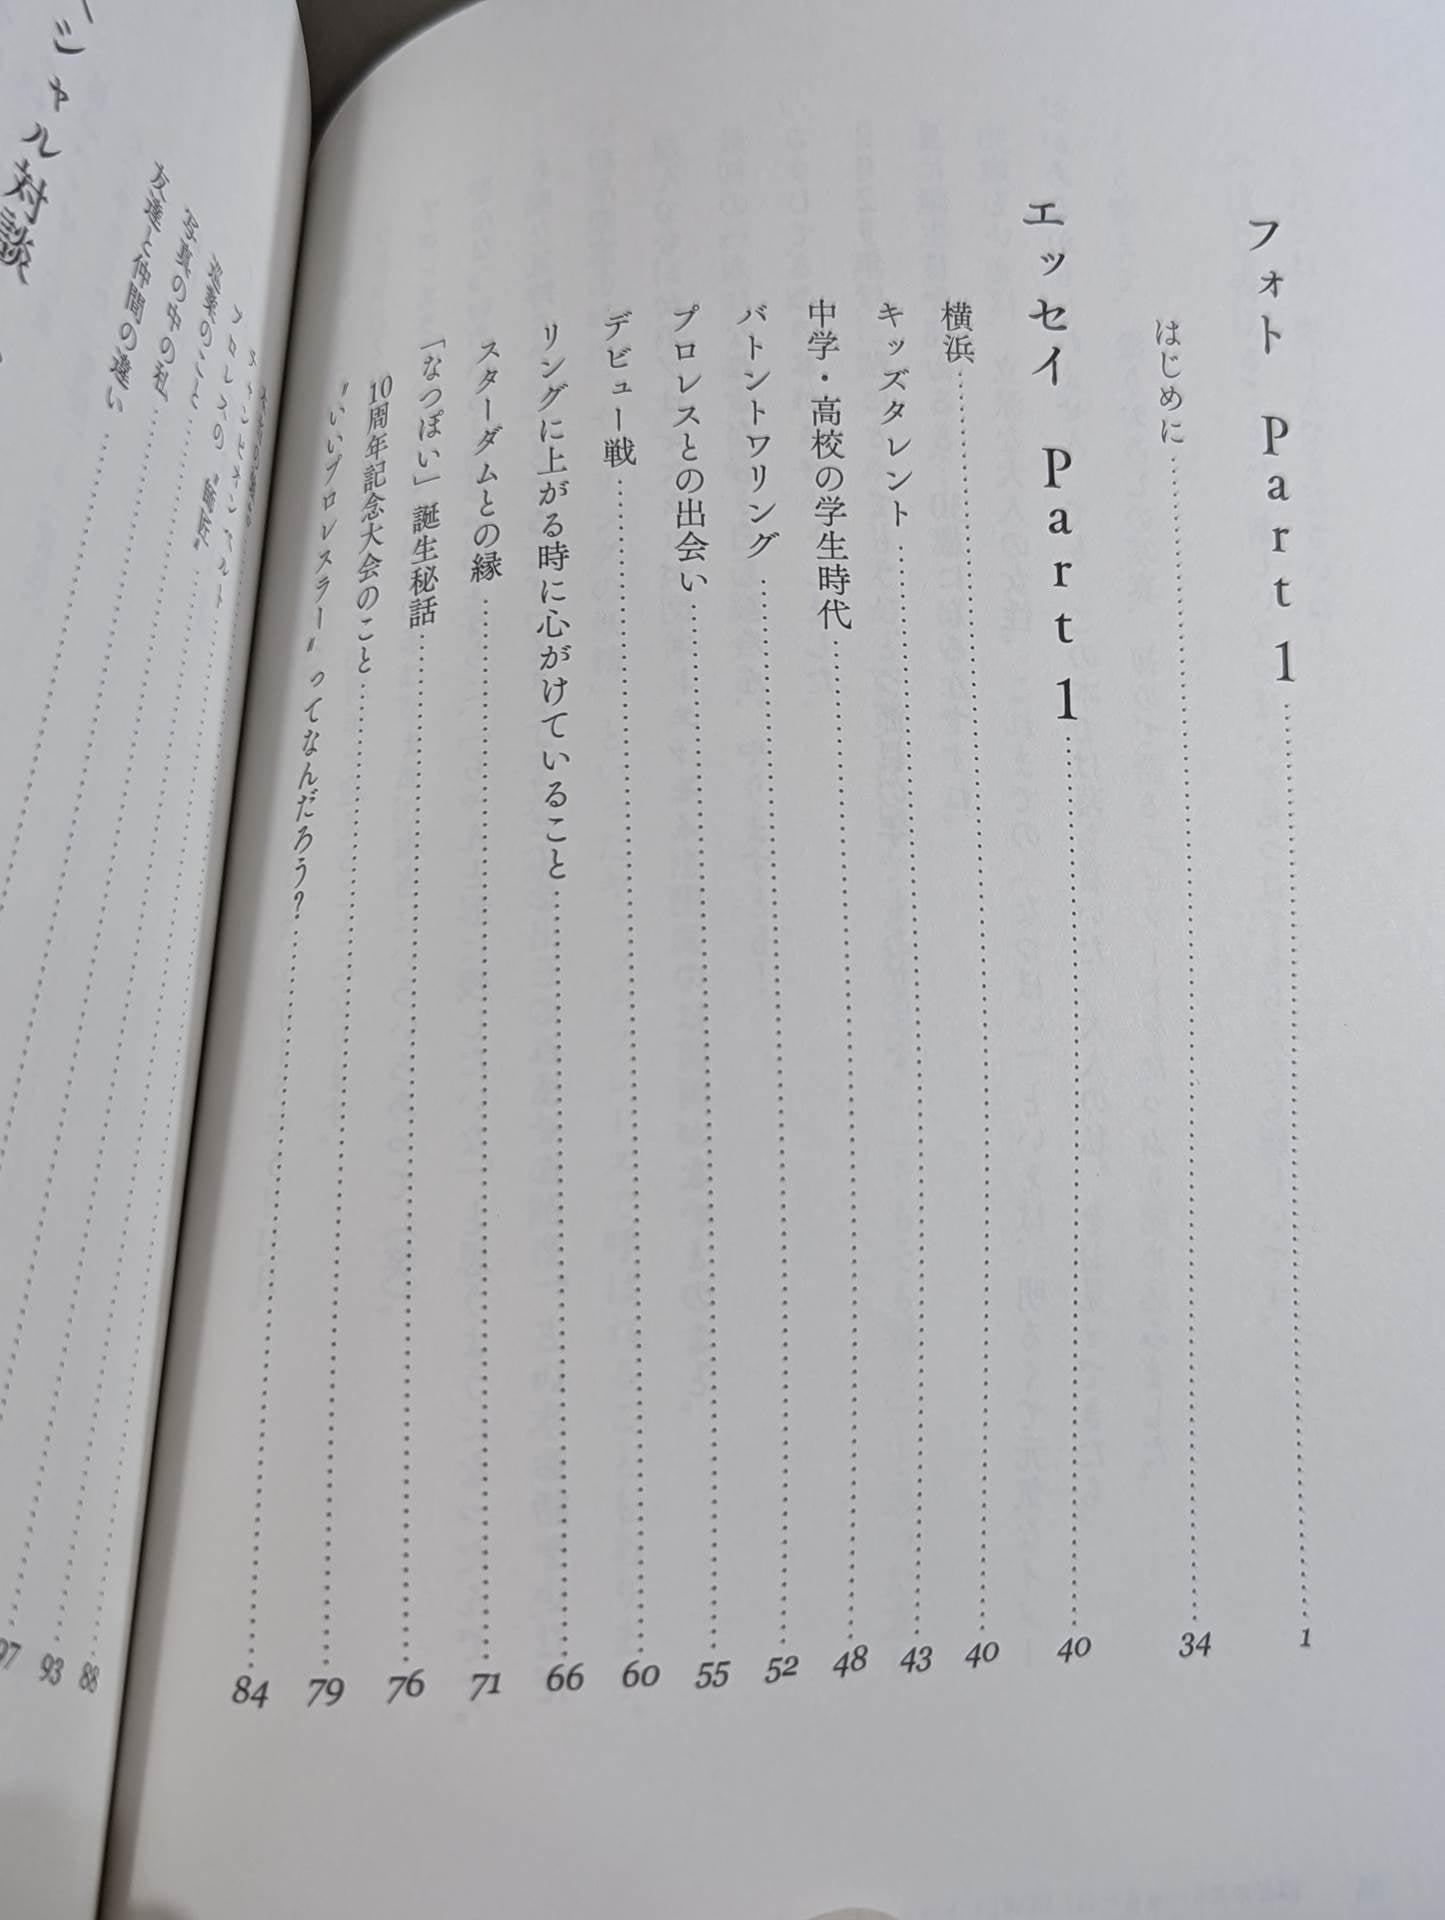 フォト Part 1 1
はじめに 34
エッセイ Part 1 40
横浜 40
キッズタレント 43
中学・高校の学生時代 48
バトントワリング 52
プロレスとの出会い 55
デビュー戦 60
リングに上がる時に心がけていること 66
スターダムとの縁 71
「なつぽい」誕生秘話 76
10周年記念大会のこと 79
〝いいプロレスラー〟ってなんだろう? 84
プロレスの〝師匠〟
写真の中の私
友達と仲間の違い
シャル対談
88
93
97